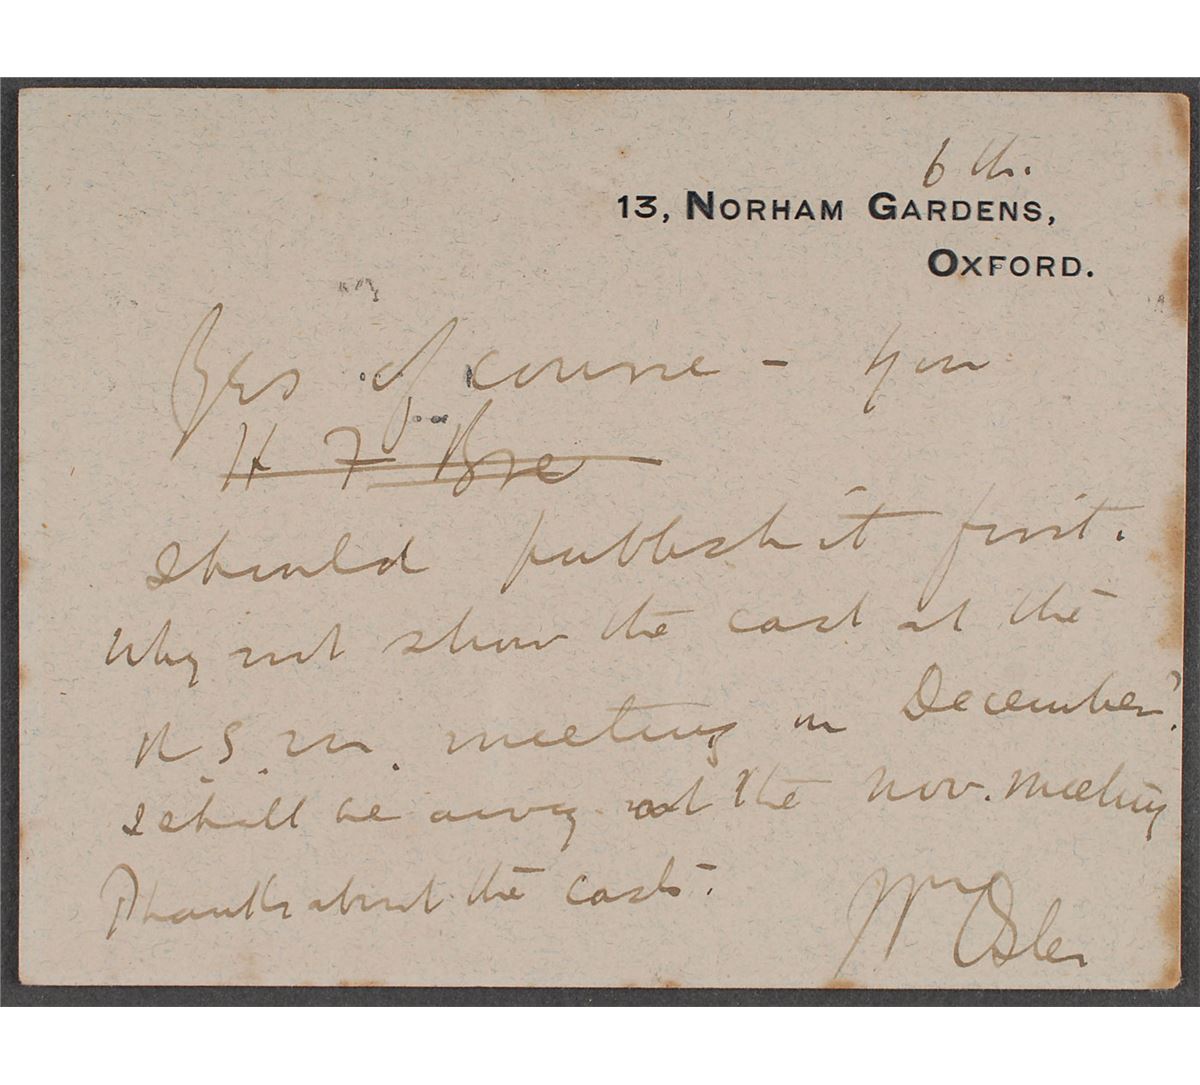 6th.
13, NORHAM GARDENS,
OXFORD.
Yes of course – you
H F Bre
should publish it first.
Why not show the cast at the
R.S.M. meeting in December?
I shall be away at the Nov. meeting
Thanks about the casts.
Wm Osler